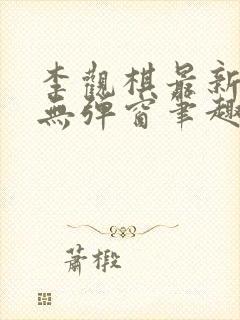 李觀棋最新
無彈窗筆趣
蕭椴